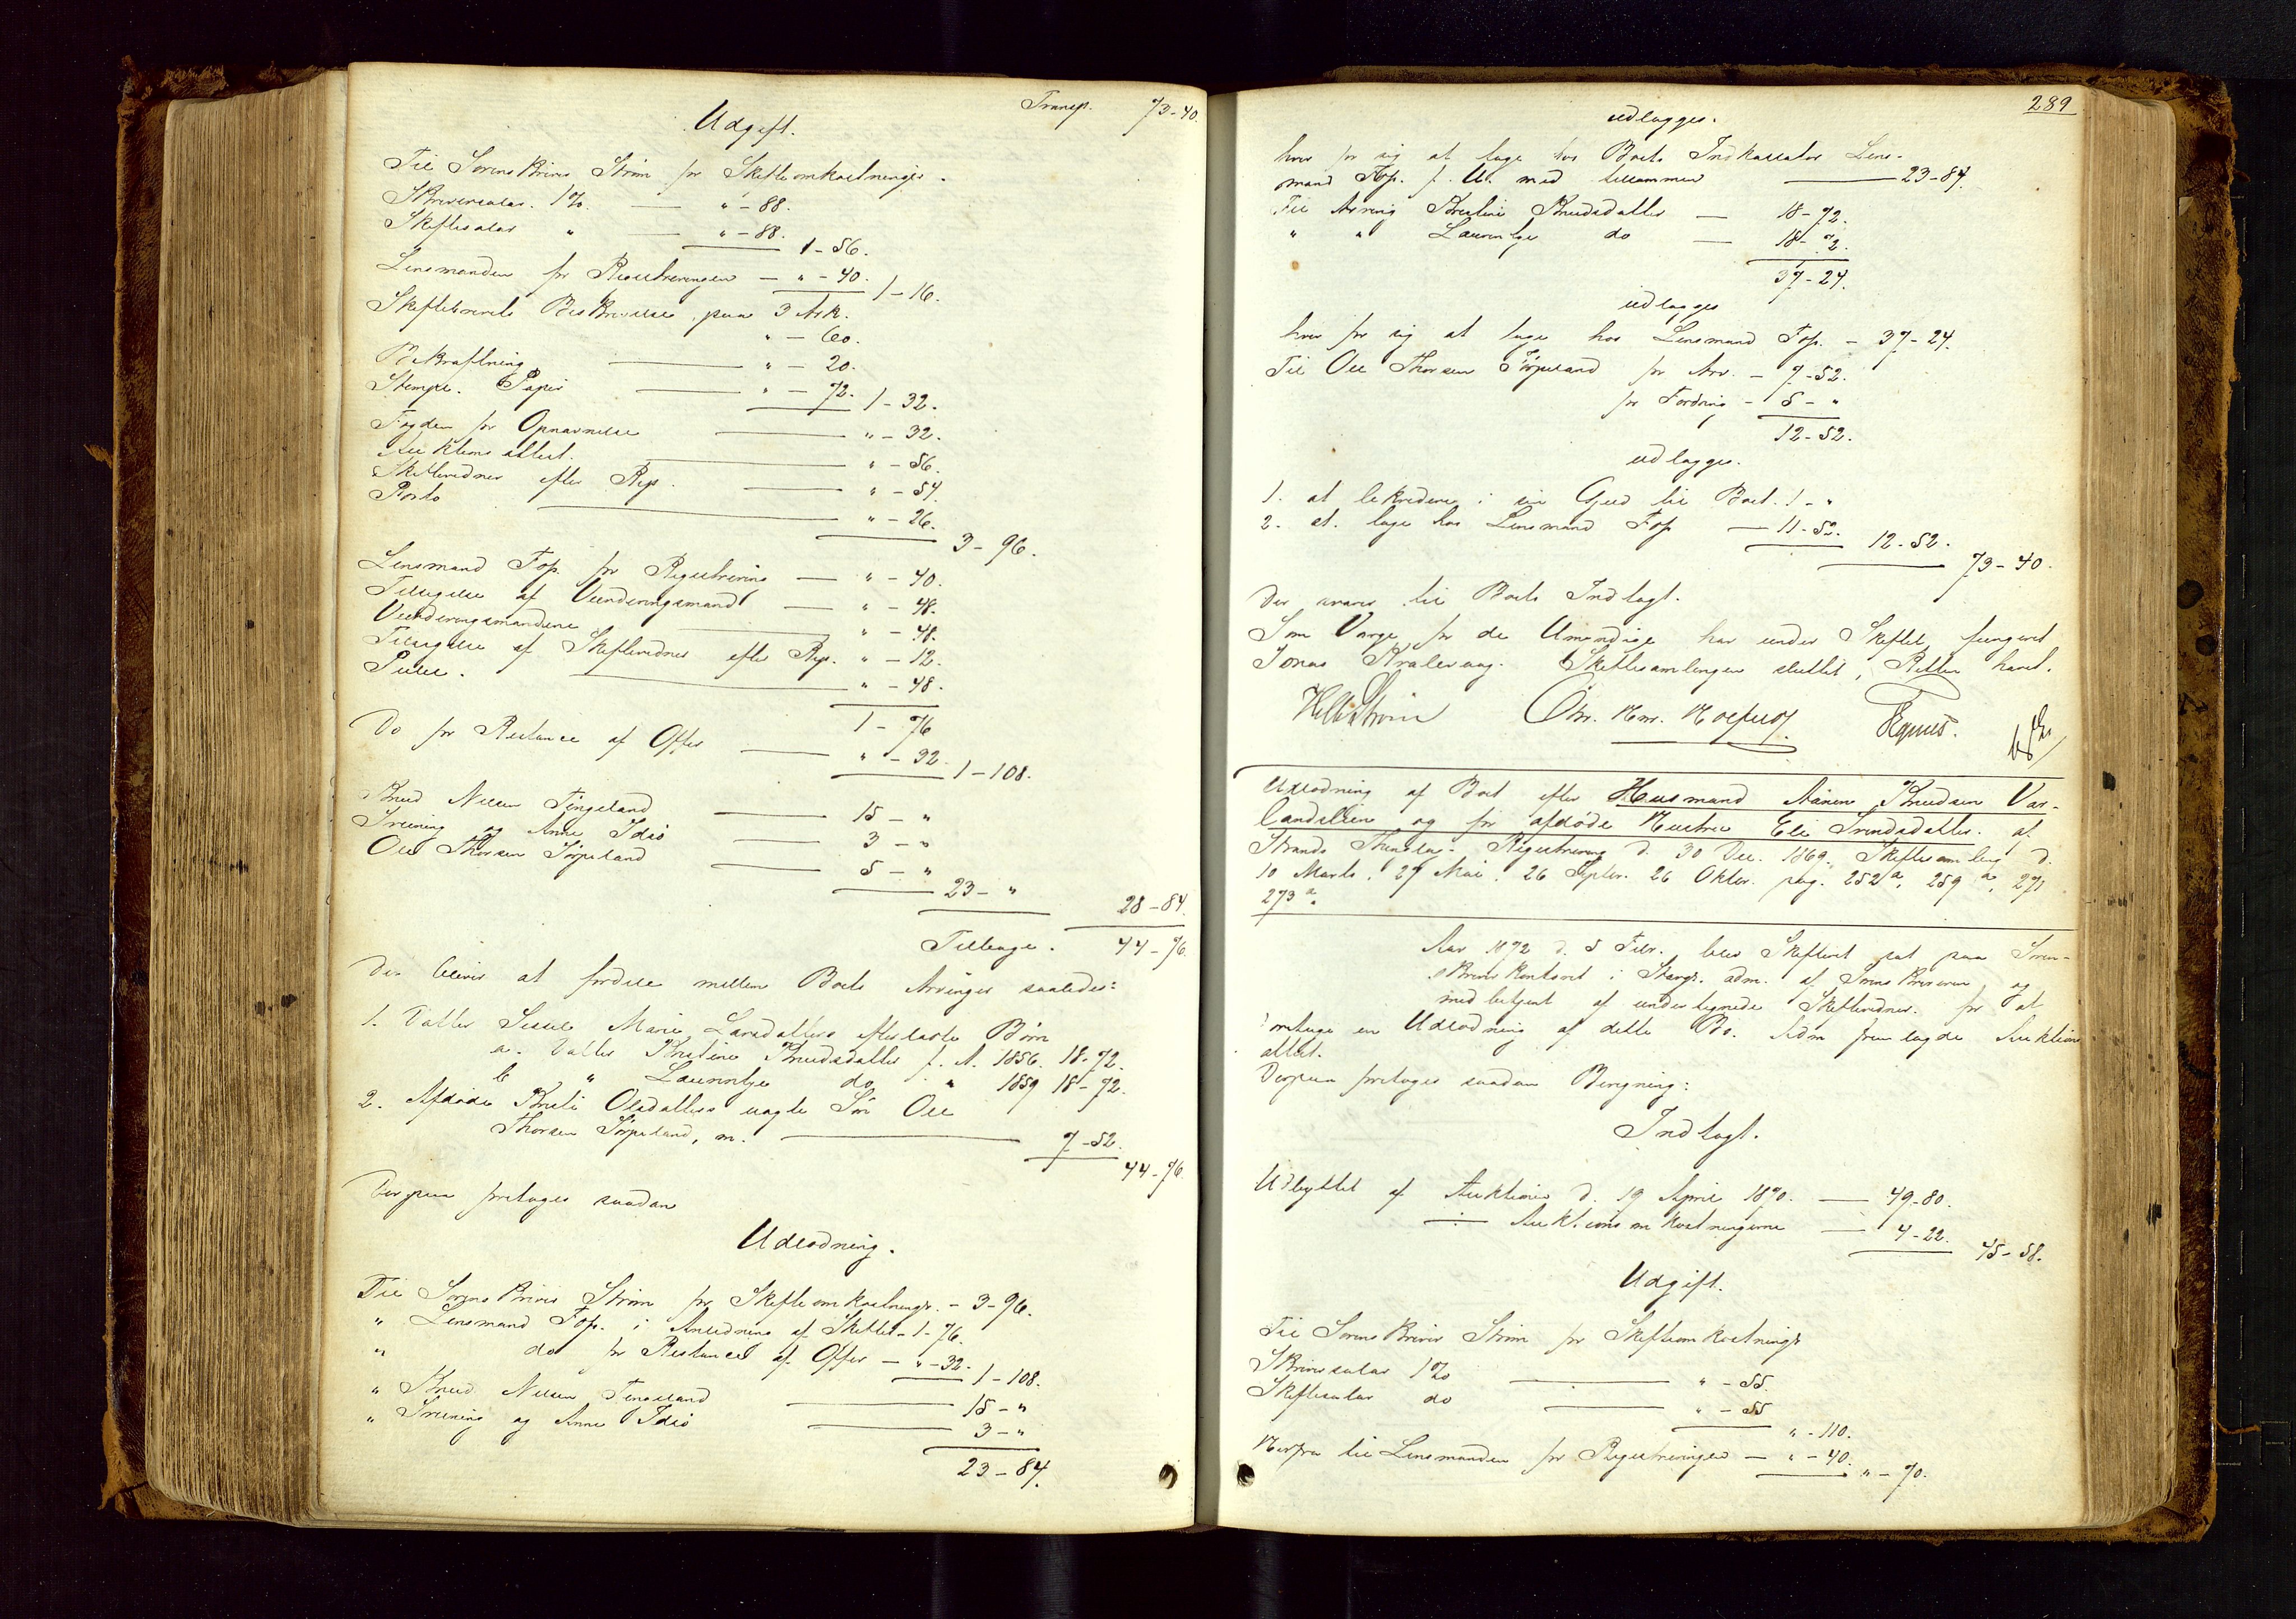 Transp. 73-40.
Udgift.
Til Sorenskriver Strøm for Skifteomkostninger.
Skriversalar. 1%. — " - 88.
Skiftesalar " — " - 88.
1 - 56.
Lensmanden for Registreringen — " - 40.
1 - 16.
Skiftebrevets Beskrivelse paa 3 Ark.
" - 60.
Bekræftning — " - 20.
Stempl. Papir — " - 72. 1 - 32.
Fogden for Opnævnelse — " - 32.
Auktions attest. — " - 56.
Skiftevidner efter Rep. — " - 54.
Porto — " - 26.
3 - 96.
Lensmand Fop. for Registrering — " - 40.
Tilsigelse af Vurderingsmænd — " - 48.
Vurderingsmændene — " - 48.
Tilsigelse af Skiftevidner efter Rep. " - 12.
— " - 48.
1 - 76
Do for Restance af Offer — " - 32. 1 - 108.
Knud Nilsen Tengesland — 15 - "
og Anne Idsö — 3 - "
Ole Thorsen Jörpeland — 5 - "
23 - "
28 - 84.
Tilbage. 44 - 76.
Der bliver at fordele mellem Boets Arvinger saaledes:
1. Datter Sissele Marie Larsdatters efterladte Børn
a. Datter Kristine Knudsdatter f. A. 1856. 18 - 72.
b " Laurentze do " 1859 18 - 72.
2. Afdøde Kristi Olsdatters uægte Søn Ole
Thorsen Jørpeland, m. — 7 - 52.
44 - 76.
Derpaa foretages saadan
Udlodning.
Til Sorenskriver Strøm for Skifteomkostningr. - 3 - 96.
" Lensmand Fop. i Anledning af Skiftet - 1 - 76.
" do for Restance af Offer — " - 32.
1 - 108.
" Knud Nilsen Tengesland — 15 - "
" og Anne Idsö — 3 - "
23 - 84.
289
udlægges.
hver for sig at tage hos Boets Inkassator Lens-
mand Fop. f. U. med tilsammen — 23 - 84.
Til Arving Kristine Knudsdatter — 18 - 72.
" " Laurentze do — 18 - 72.
37 - 24.
udlægges
hver for sig at tage hos Lensmand Fop. - 37 - 24.
Til Ole Thorsen Jörpeland for Arv. - 7 - 52.
for Fordring - 5 - "
12 - 52.
udlægges.
1. at likvidere i sin Gjeld til Boet. 1 - "
2. at tage hos Lensmand Fop — 11 - 52.
12 - 52.
73 - 40.
Der svarer til Boets Indtægt.
Som Værge for de Umyndige har under Skiftet fungeret
Jonas Kvalevaag. Skiftesamlingen sluttet, Retten hævet.
Strøm
Udlodning af Boet efter Husmand Aanen Knudsen Var-
landslien og før afdøde Hustru Eli Svendsdatter. af
Strands Thinglag. Registrering d. 30 Dec. 1869. Skiftesamling d.
10 Marts, 27 Mai, 26 Septbr. 26 Oktbr. pag. 252a, 259a, 271
273a.
Aar 1872 d. 5 Febr. blev Skifteret sat paa Soren-
skriverkontoret i Stavgr. adm. af Sorenskriveren og
med betjent af undertegnede Skiftevidner for at
foretage en Udlodning af dette Bo. Adm fremlagde Auktions
attest.
Derpaa foretages saadan Beregning:
Indtægt.
Udbyttet af Auktionen d. 19 April 1870. — 49 - 80.
÷ Auktionsomkostningerne — 4 - 22.
45 - 58.
Udgift.
Til Sorenskriver Strøm for Skifteomkostningr
Skriversalar 1% — " - 55.
Skiftesalar do — " - 55
" - 110.
Herfra til Lensmanden for Registreringen — " - 40.
" - 70.